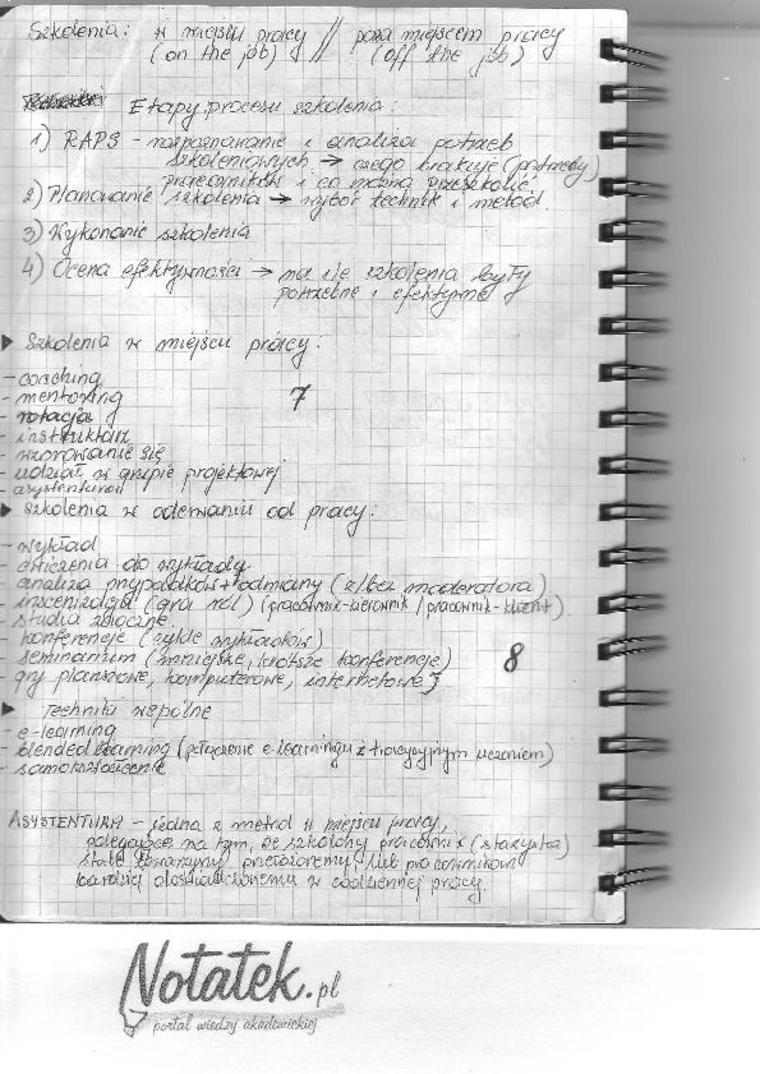 Szkolenia: w miejscu pracy // poza miejscem pracy
(on the job) (off the job)
Etapy procesu szkolenia:
1) RAPS - rozpoznawanie i analiza potrzeb
szkoleniowych → czego brakuje (potrzeby)
pracowników i co można przeszkolić.
2) Planowanie szkolenia → wybór technik i metod.
3) Wykonanie szkolenia
4) Ocena efektywności → na ile szkolenia były
potrzebne i efektywne
▶ Szkolenia w miejscu pracy:
- coaching
- mentoring
7
- rotacja
- instruktaż
- wzorowanie się
- udział w grupie projektowej
- asystentura
▶ szkolenia w oderwaniu od pracy:
- wykład
- ćwiczenia do wykładu
- analiza przypadków + odmiany (z/bez moderatora)
- inscenizacja (gra ról) (pracownik-kierownik / pracownik-klient)
- studia zaoczne.
- konferencje (cykle wykładów)
- seminarium (mniejsze, krótsze konferencje)
8
- gry planszowe, komputerowe, internetowe}
▶ Techniki wspólne
- e-learning
- blended learning (połączenie e-learningu z tradycyjnym uczeniem)
- samokształcenie
ASYSTENTURA - jedna z metod w miejscu pracy,
polegająca na tym, że szkolony pracownik (stażysta)
stale towarzyszy przełożonemu, lub pracownikowi
bardziej doświadczonemu w codziennej pracy.
Notatek.pl
portal wiedzy akademickiej